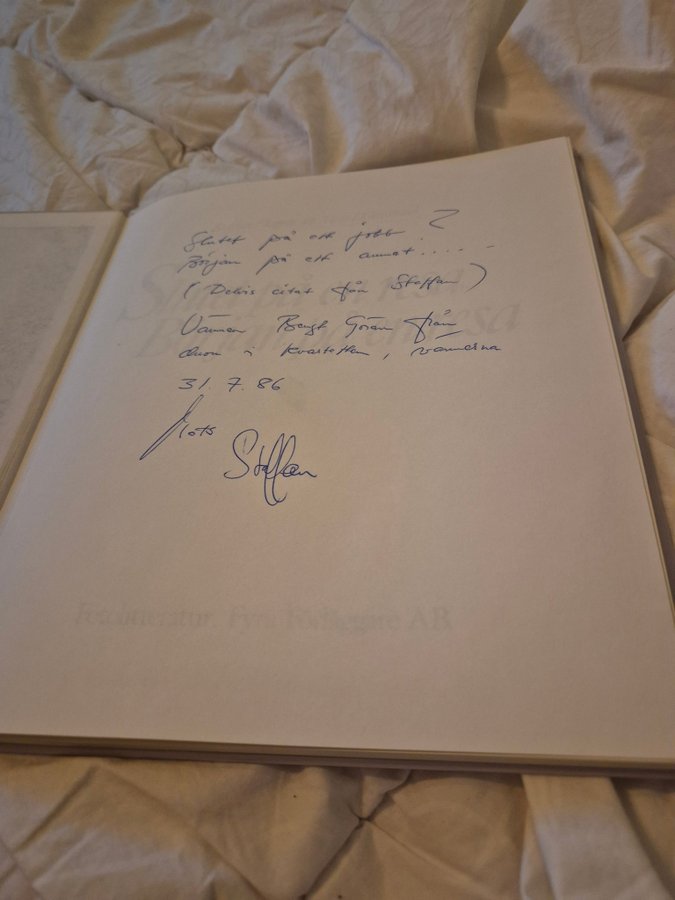 Slutet på ett jobb ?
Början på ett annat.....
(Delvis citat från Steffan)
Vännen Bengt Göran från
duon i kvartetten, vännerna
31.7.86
Mats
Steffan
Fyra Förläggare AB